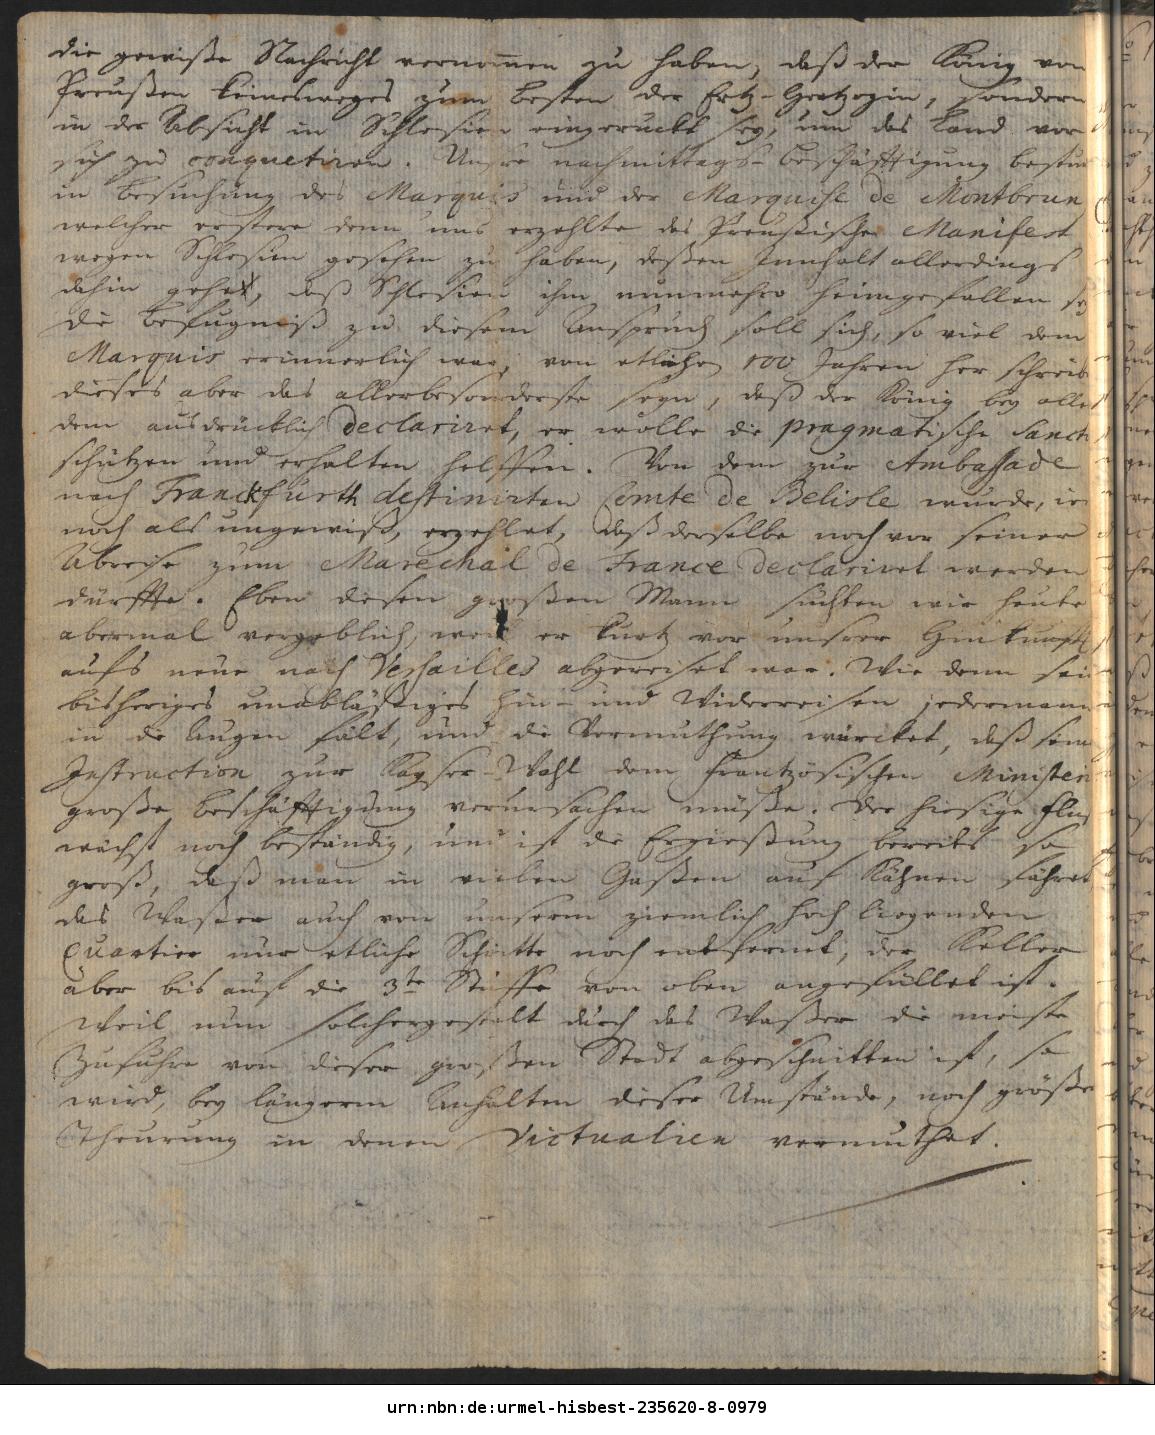 die gewiße Nachricht vernom̄en zu haben, daß der König von
Preußen keinesweges zum Besten der Ertz-Hertzogin, sondern
in der Absicht in Schlesien eingeruckt sey, um das Land vor
sich zu conquetiren. Unsre nachmittags-beschäfftigung bestun
in besuchung des Marquis und der Marquise de Montbrun
welcher erstere denn uns erzehlte das Preußische Manifest
wegen Schlesien gesehen zu haben, deßen Innhalt allerdings
dahin gehet, daß Schlesien ihm nunmehro heimgefallen sey
die befugniß zu diesem Anspruch soll sich, so viel dem
Marquis erinnerlich war, von etlichen 100 Jahren her schreib
dieses aber das allerbesonderste seyn, daß der König bey alle
dem ausdrücklich declariret, er wolle die pragmatische Sancti
schützen und erhalten helffen. Von dem zur Ambassade
nach Franckfurth destinirten Comte de Belisle wurde, ie
noch als ungewiß, erzehlet, daß derselbe noch vor seiner
Abreise zum Marechal de France declariret werden
dürffte. Eben diesen großen Mann suchten wir heute
abermal vergeblich, weil er kurtz vor unsrer Hinkunfft
aufs neue nach Versailles abgereiset war. Wie denn sein
bisheriges unabläßiges Hin- und Widerreisen jedermann
in die Augen fält, und die Vermuthung würcket, daß seine
Instruction zur Kayser-Wahl dem Frantzösischen Ministeri
große beschäfftigung verursachen müße. Der hiesige Fluß
wächst noch beständig, und ist die Ergießung bereits so
groß, daß man in vielen Gaßen auf Kähnen fähret
das Waßer auch von unserm ziemlich hoch liegenden
Quartier nur etliche Schritte noch entfernt, der Keller
aber bis auf die 3te Stuffe von oben angefüllet ist.
Weil nun solchergestalt durch das Waßer die meiste
Zufuhre von dieser großen Stadt abgeschnitten ist, so
wird, bey längerm Anhalten dieser Umstände, noch größere
Theurung in denen Victualien vermuthet.
urn:nbn:de:urmel-hisbest-235620-8-0979